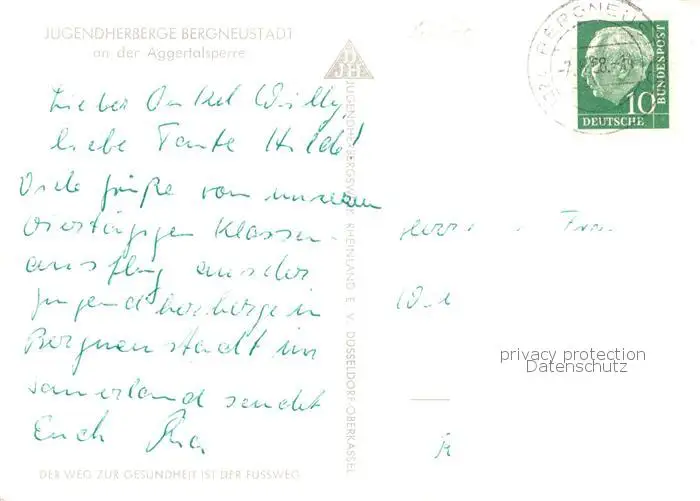 JUGENDHERBERGE BERGNEUSTADT
an der Aggertalsperre
Lieber Onkel Willy,
liebe Tante Hilde!
Viele Grüße von unserem
viertägigen Klassen-
ausflug aus der
Jugendherberge in
Bergneustadt im
Sauerland sendet
Euch
DER WEG ZUR GESUNDHEIT IST DER FUSSWEG
DJH
JUGENDHERBERGSWERK RHEINLAND E. V. DÜSSELDORF-OBERKASSEL
BERGNEUS
10
DEUTSCHE
BUNDESPOST
privacy protection
Datenschutz